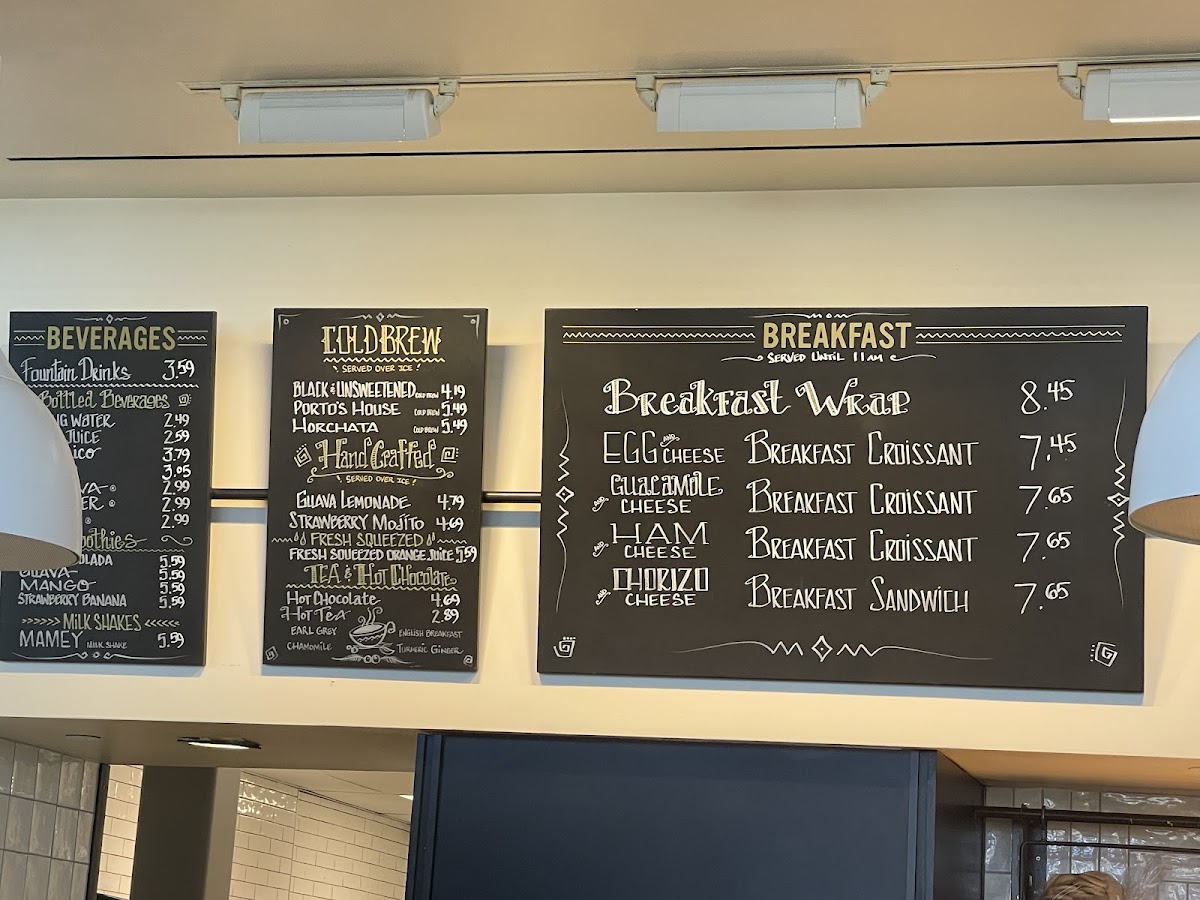 BEVERAGES
Fountain Drinks 3.59
Bottled Beverages
WATER 2.49
JUICE 2.59
3.79
3.05
2.99
2.99
2.99
5.59
GUAVA 5.59
MANGO 5.59
STRAWBERRY BANANA 5.59
MILK SHAKES
MAMEY MILK SHAKE 5.59
COLD BREW
SERVED OVER ICE!
BLACK & UNSWEETENED COLD BREW 4.19
PORTO'S HOUSE COLD BREW 5.49
HORCHATA COLD BREW 5.49
Hand Crafted
SERVED OVER ICE!
GUAVA LEMONADE 4.79
STRAWBERRY MOJITO 4.69
FRESH SQUEEZED
FRESH SQUEEZED ORANGE JUICE 5.59
TEA & HOT CHOCOLATE
HOT CHOCOLATE 4.69
HOT TEA 2.89
EARL GREY ENGLISH BREAKFAST
CHAMOMILE TURMERIC GINGER
BREAKFAST
SERVED UNTIL 11AM
Breakfast Wrap 8.45
EGG AND CHEESE BREAKFAST CROISSANT 7.45
GUACAMOLE AND CHEESE BREAKFAST CROISSANT 7.65
HAM AND CHEESE BREAKFAST CROISSANT 7.65
CHORIZO AND CHEESE BREAKFAST SANDWICH 7.65